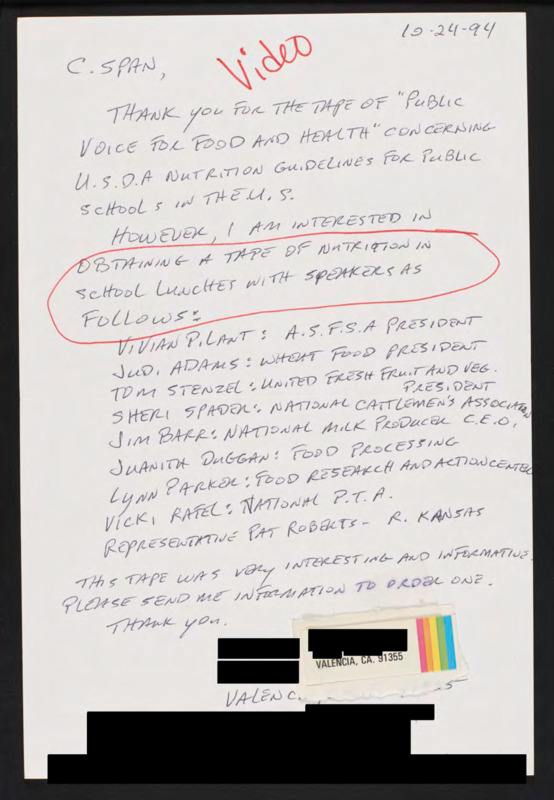 10-24-94
Video
C. SPAN,
THANK YOU FOR THE TAPE OF "PUBLIC
VOICE FOR FOOD AND HEALTH" CONCERNING
U.S.D.A NUTRITION GUIDELINES FOR PUBLIC
SCHOOLS IN THE U.S.
HOWEVER, I AM INTERESTED IN
OBTAINING A TAPE OF NUTRITION IN
SCHOOL LUNCHES WITH SPEAKERS AS
FOLLOWS:
VIVIAN PILANT: A.S.F.S.A PRESIDENT
JUDI ADAMS: WHEAT FOOD PRESIDENT
TOM STENZEL: UNITED FRESH FRUIT AND VEG.
PRESIDENT
SHERI SPADER: NATIONAL CATTLEMEN'S ASSOCIATION
JIM BARR: NATIONAL MILK PRODUCER C.E.O.
JUANITA DUGGAN: FOOD PROCESSING
LYNN PARKER: FOOD RESEARCH AND ACTION CENTER
VICKI RAFEL: NATIONAL P.T.A.
REPRESENTATIVE PAT ROBERTS - R. KANSAS
THIS TAPE WAS VERY INTERESTING AND INFORMATIVE.
PLEASE SEND ME INFORMATION TO ORDER ONE.
THANK YOU.
VALENCIA, CA. 91355
VALENC
5